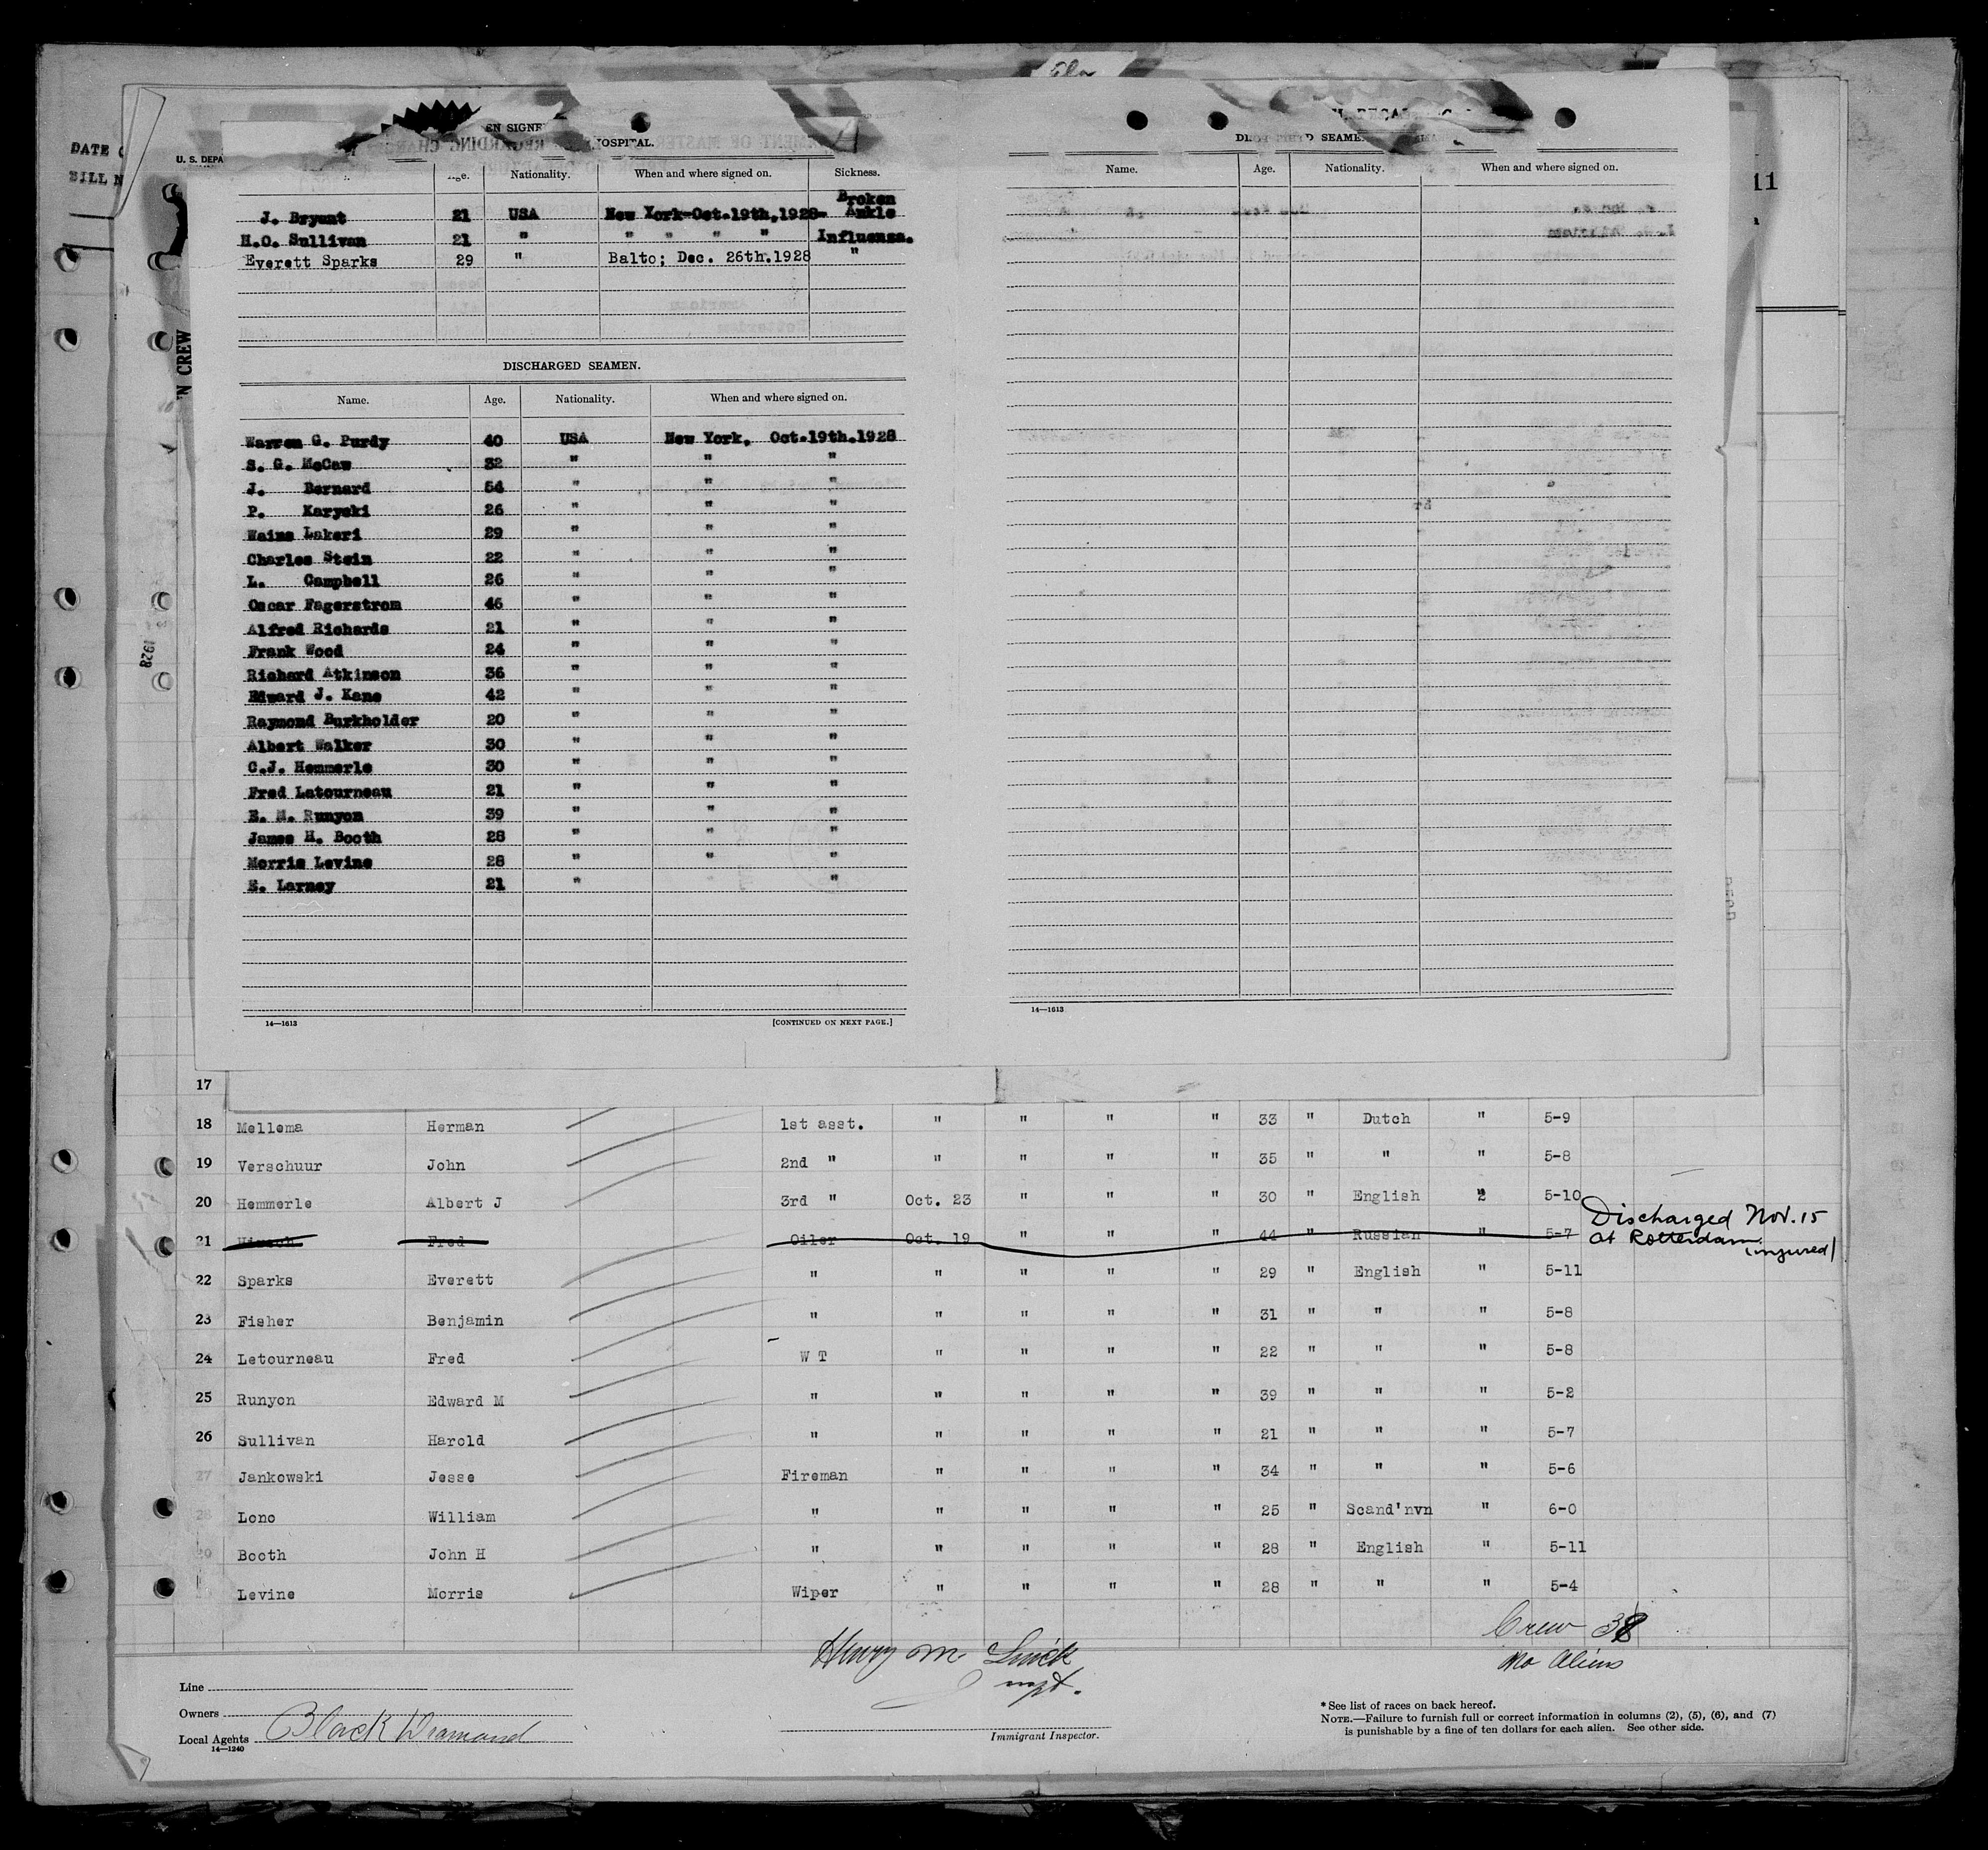 DATE
BILL N
U. S. DEPA
EN SIGNE
HOSPITAL.
Nationality. When and where signed on. Sickness.
J. Bryant 21 USA New York-Oct.19th,1928- Broken Ankle
H.O. Sullivan 21 " " " " " Influenza.
Everett Sparks 29 " Balto; Dec. 26th.1928 "
DISCHARGED SEAMEN.
Name. Age. Nationality. When and where signed on.
Warren G. Purdy 40 USA New York, Oct.19th.1928
S. G. McCaw 32 " " "
J. Bernard 54 " " "
P. Karyski 26 " " "
Waino Lakeri 29 " " "
Charles Stein 22 " " "
L. Campbell 26 " " "
Oscar Fagerstrom 46 " " "
Alfred Richards 21 " " "
Frank Wood 24 " " "
Richard Atkinson 36 " " "
Edward J. Kane 42 " " "
Raymond Burkholder 20 " " "
Albert Walker 30 " " "
C.J. Hemmerle 30 " " "
Fred Latourneau 21 " " "
E. M. Runyon 39 " " "
James H. Booth 28 " " "
Morris Levine 28 " " "
E. Larney 21 " " "
14—1613 [CONTINUED ON NEXT PAGE.]
SEAME
Name. Age. Nationality. When and where signed on.
14—1613
11
N CREW
1928
17
18 Mellema Herman 1st asst. " " " " 33 " Dutch " 5-9
19 Verschuur John 2nd " " " " " 35 " " " 5-8
20 Hemmerle Albert J 3rd " Oct. 23 " " " 30 " English " 5-10
21 Fred Oiler Oct. 19 " " " 44 " Russian " 5-7 Discharged Nov. 15
at Rotterdam
(injured)
22 Sparks Everett " " " " " 29 " English " 5-11
23 Fisher Benjamin " " " " " 31 " " " 5-8
24 Letourneau Fred W T " " " " 22 " " " 5-8
25 Runyon Edward M " " " " " 39 " " " 5-2
26 Sullivan Harold " " " " " 21 " " " 5-7
27 Jankowski Jesse Fireman " " " " 34 " " " 5-6
28 Lono William " " " " " 25 " Scand'nvn " 6-0
Booth John H " " " " " 28 " English " 5-11
Levine Morris Wiper " " " " 28 " " " 5-4
Crew 38
No Aliens
Henry M.
Line
Owners
Local Agents Black Diamond
14—1240
Immigrant Inspector.
* See list of races on back hereof.
NOTE.—Failure to furnish full or correct information in columns (2), (5), (6), and (7)
is punishable by a fine of ten dollars for each alien. See other side.